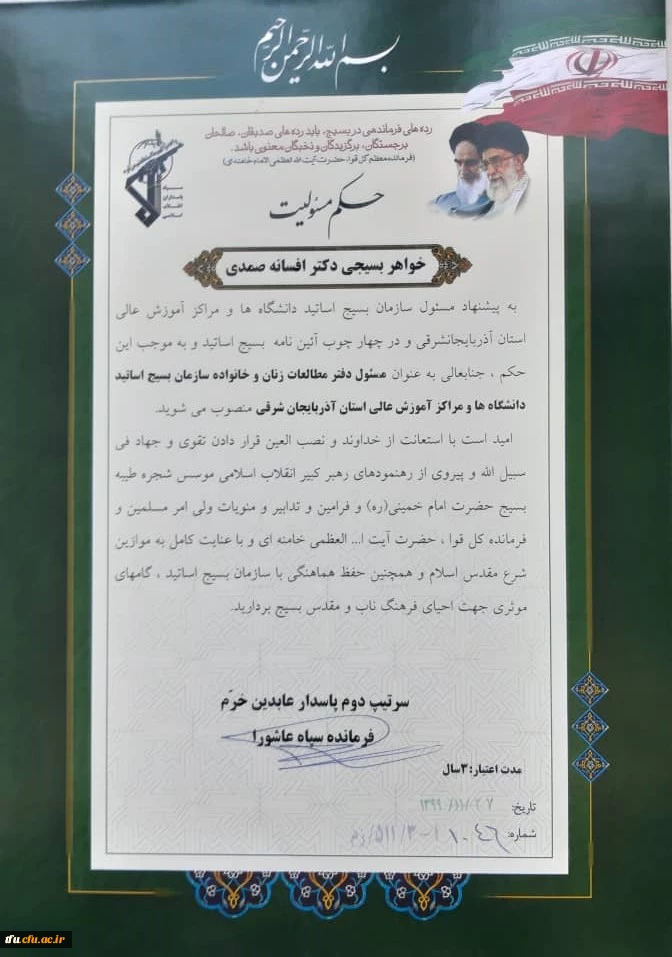 بسم الله الرحمن الرحیم
رده های فرماندهی در بسیج، باید رده های صدیقان، صالحان
برجستگان، برگزیدگان و نخبگان معنوی باشد.
(فرمانده معظم کل قوا، حضرت آیت الله العظمی امام خامنه ای)
سپاه
پاسداران
انقلاب
اسلامی
حکم مسئولیت
خواهر بسیجی دکتر افسانه صمدی
به پیشنهاد مسئول سازمان بسیج اساتید دانشگاه ها و مراکز آموزش عالی
استان آذربایجانشرقی و در چهار چوب آئین نامه بسیج اساتید و به موجب این
حکم ، جنابعالی به عنوان مسئول دفتر مطالعات زنان و خانواده سازمان بسیج اساتید
دانشگاه ها و مراکز آموزش عالی استان آذربایجان شرقی منصوب می شوید.
امید است با استعانت از خداوند و نصب العین قرار دادن تقوی و جهاد فی
سبیل الله و پیروی از رهنمودهای رهبر کبیر انقلاب اسلامی موسس شجره طیبه
بسیج حضرت امام خمینی(ره) و فرامین و تدابیر و منویات ولی امر مسلمین و
فرمانده کل قوا ، حضرت آیت ا... العظمی خامنه ای و با عنایت کامل به موازین
شرع مقدس اسلام و همچنین حفظ هماهنگی با سازمان بسیج اساتید ، گامهای
موثری جهت احیای فرهنگ ناب و مقدس بسیج بردارید.
سرتیپ دوم پاسدار عابدین خرّم
فرمانده سپاه عاشورا
مدت اعتبار: ۳سال
تاریخ: ۱۳۹۹/۱۱/۰۲۷
شماره:
tfu.cfu.ac.ir